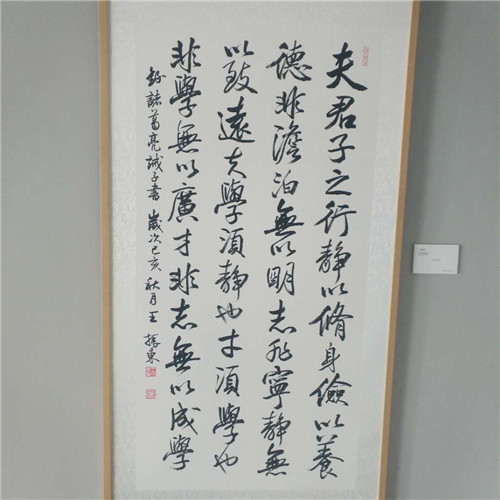 夫君子之行静以脩身儉以養
德非澹泊無以明志非寧静無
以致遠夫學須静也才須學也
非學無以廣才非志無以成學
錄諸葛亮誡子書 歲次己亥秋月王振東